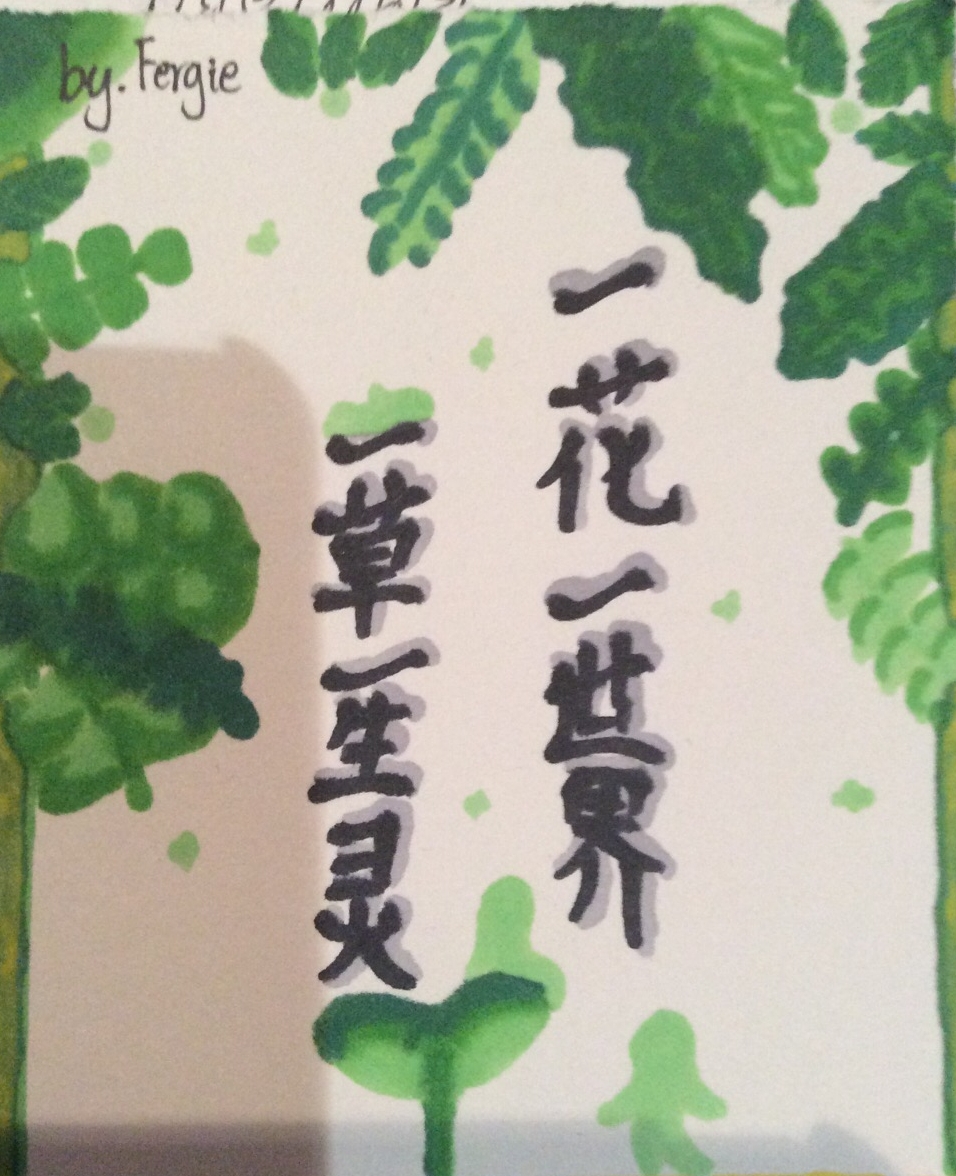 by. Fergie
一花一世界
一草一生灵